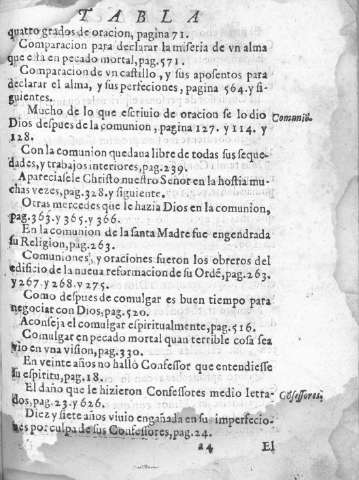 TABLA
quatro grados de oracion, pagina 71.
Comparacion para declarar la miseria de vn alma
que està en pecado mortal, pag. 571.
Comparacion de vn castillo, y sus aposentos para
declarar el alma, y sus perfeciones, pagina 564. y si-
guientes.
Mucho de lo que escriuio de oracion se lo dio
Dios despues de la comunion, pagina 127. y 114. y
128.
Comunió.
Con la comunion quedaua libre de todas sus seque-
dades, y trabajos interiores, pag. 239.
Apareciasele Christo nuestro Señor en la hostia mu-
chas vezes, pag. 328. y siguiente.
Otras mercedes que le hazia Dios en la comunion,
pag. 363. y 365. y 366.
En la comunion de la santa Madre fue engendrada
su Religion, pag. 263.
Comuniones, y oraciones fueron los obreros del
edificio de la nueua reformacion de su Ordé, pag. 263.
y 267. y 268. y 275.
Como despues de comulgar es buen tiempo para
negociar con Dios, pag. 520.
Aconseja el comulgar espiritualmente, pag. 516.
Comulgar en pecado mortal quan terrible cosa sea
vio en vna vision, pag. 330.
En veinte años no hallò Confessor que entendiesse
su espiritu, pag. 18.
El daño que le hizieron Confessores medio letra-
dos, pag. 23. y 626.
Cófessores.
Diez y siete años viuio engañada en su imperfecio-
nes por culpa de sus Confessores, pag. 24.
24 El